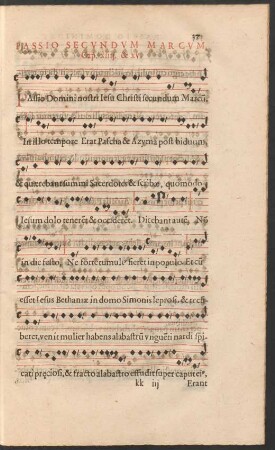 PASSIO SECVNDVM MARCVM,
Cap. xiiij. & xv.
PAssio Domini nostri Iesu Christi secundum Marcũ,
In illo tempore Erat Pascha & Azyma post biduum,
& quærebant summi Sacerdotes & scribæ, quomodo
Iesum dolo tenerẽt & occiderẽt. Dicebant autẽ, Nõ
in die festo, Ne forte tumult' fieret in populo. Et cũ
esset Iesus Bethaniæ in domo Simonis leprosi, & reclũ
beret, venit mulier habens alabastrũ vnguẽti nardi spi
cati preciosi, & fracto alabastro effudit super caput ei'.
kk iij Erant